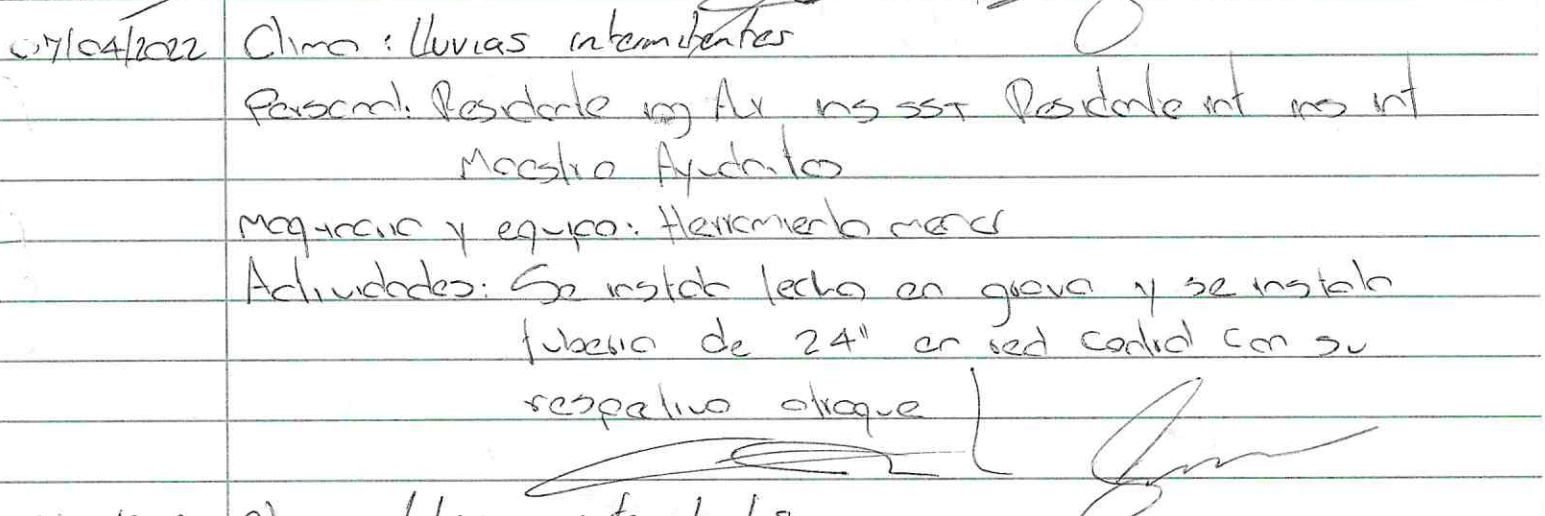 07/04/2022 Clima : lluvias intermitentes
Personal: Residente ing Ax ins SST Residente int ins int
Maestro Ayudantes
Maquinaria y equipo: Herramienta menor
Actividades: Se instala lecho en grava y se instala
tuberia de 24" en red central con su
respectivo atraque